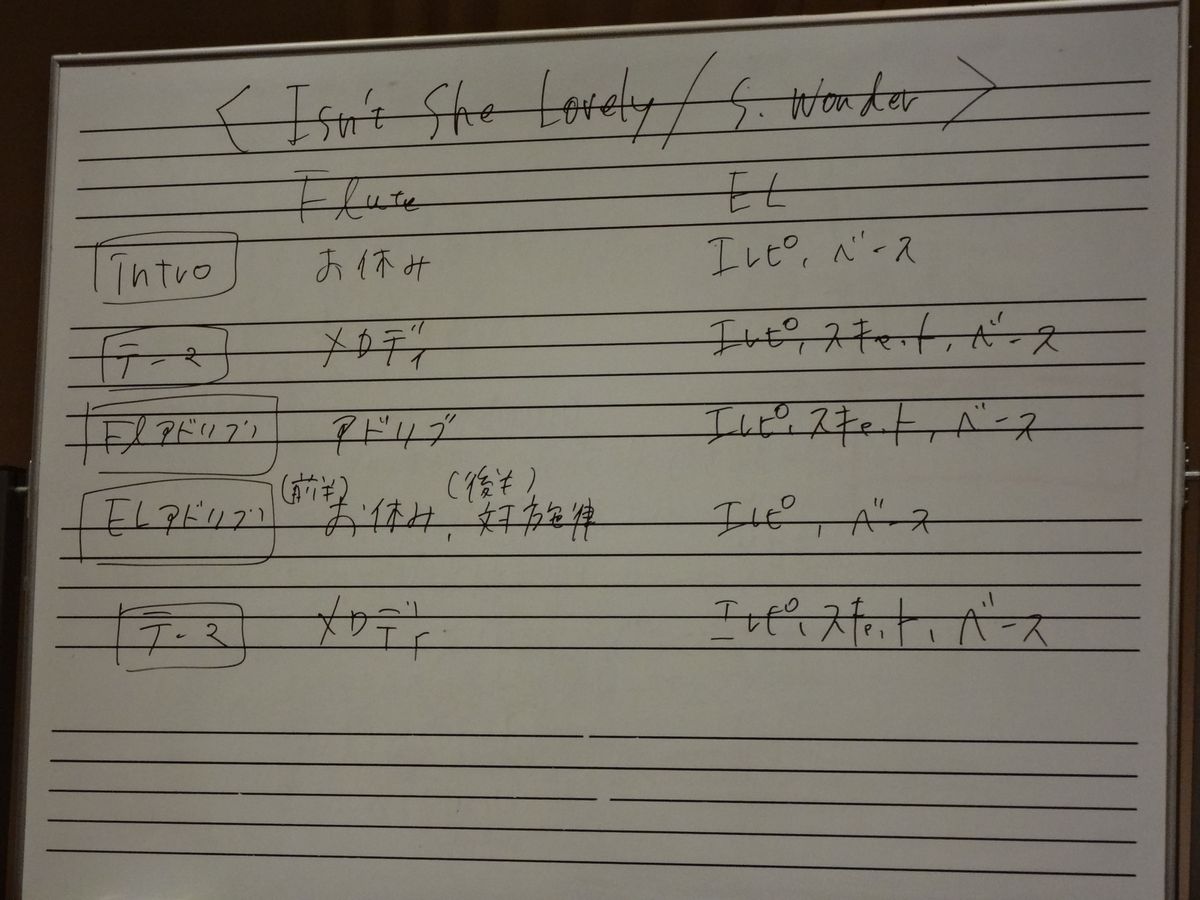 < Isn't She Lovely / S. Wonder >
Flute EL
Intro お休み エレピ, ベース
テーマ メロディ エレピ, スキャット, ベース
Flアドリブ アドリブ エレピ, スキャット, ベース
(前半) (後半)
ELアドリブ お休み, 対旋律 エレピ, ベース
テーマ メロディ エレピ, スキャット, ベース